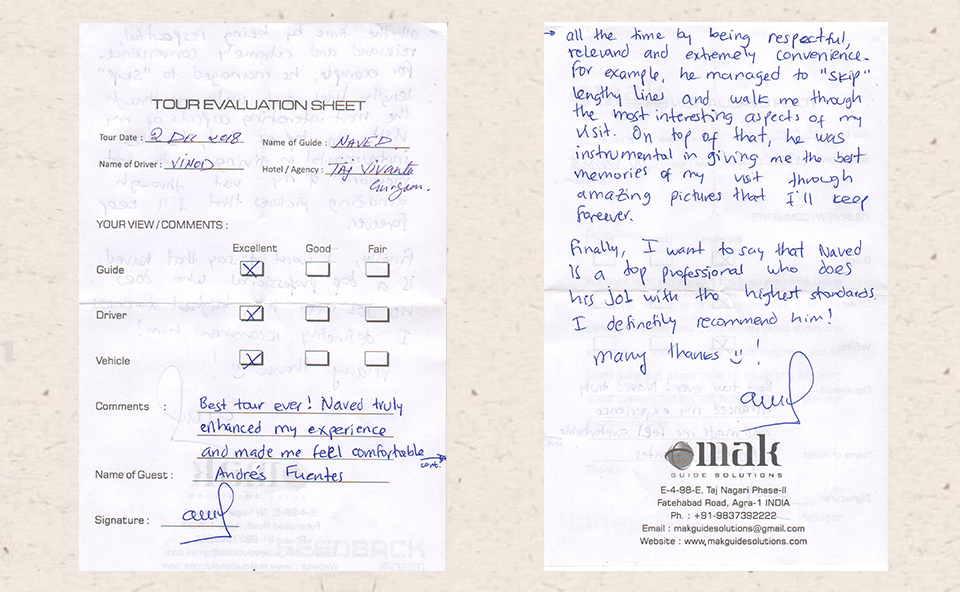 TOUR EVALUATION SHEET
Tour Date : 2 DEC 2018 Name of Guide : NAVED
Name of Driver : VINOD Hotel / Agency : TAJ Vivanta
Gurgaon.
YOUR VIEW / COMMENTS :
Excellent Good Fair
Guide X
Driver X
Vehicle X
Comments : Best tour ever! Naved truly
enhanced my experience
and made me feel comfortable →
cont.
Name of Guest : Andrés Fuentes
Signature :
→ all the time by being respectful,
relevand and extremely convenience.
For example, he managed to "skip"
lengthy lines and walk me through
the most interesting aspects of my
visit. On top of that, he was
instrumental in giving me the best
memories of my visit through
amazing pictures that I'll keep
foreever.
Finally, I want to say that Naved
is a top professional who does
his job with the highest standards.
I definetily recommend him!
Many thanks !
mak
GUIDE SOLUTIONS
E-4-98-E, Taj Nagari Phase-II
Fatehabad Road, Agra-1 INDIA
Ph. : +91-9837392222
Email : makguidesolutions@gmail.com
Website : www.makguidesolutions.com